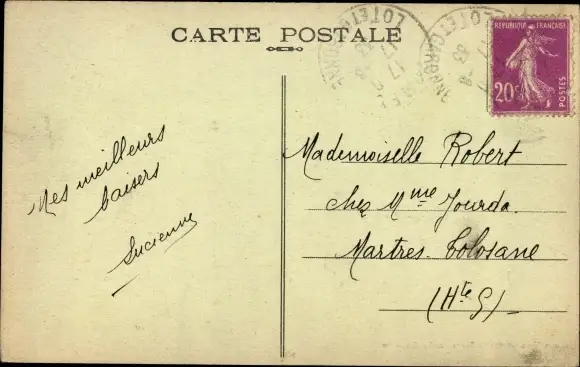 CARTE POSTALE
REPUBLIQUE FRANÇAISE
20c
POSTES
LOT ET GARONNE
LOT ET GARONNE
Mes meilleurs
baisers
Lucienne
Mademoiselle Robert
chez Mme Jourda.
Martres-Tolosane
(Hte G)